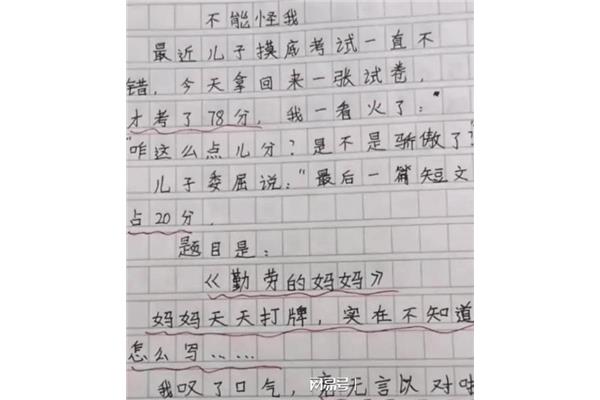 不能怪我
最近儿子摸底考试一直不
错，今天拿回来一张试卷，
才考了78分，我一看火了："
"咋这么点儿分？是不是骄傲了？
儿子委屈说："最后一篇短文
占20分．
题目是：
《勤劳的妈妈》
妈妈天天打牌，实在不知道
怎么写……
我叹了口气，无言以对
网易号